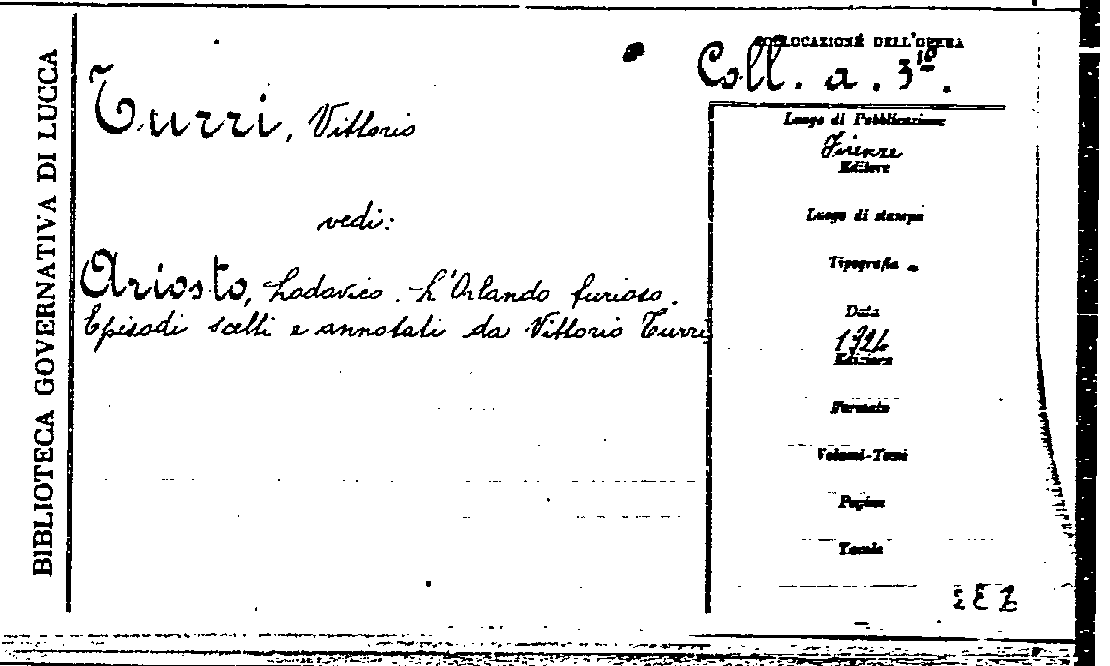 BIBLIOTECA GOVERNATIVA DI LUCCA
COLLOCAZIONE DELL'OPERA
Coll. a. 310.
Turri, Vittorio
vedi:
Ariosto, Lodovico. L'Orlando furioso.
Episodi scelti e annotati da Vittorio Turri
Luogo di Pubblicazione
Firenze
Editore
Luogo di stampa
Tipografia
Data
Edizione
Formato
Volumi-Tomi
Pagine
Tavole